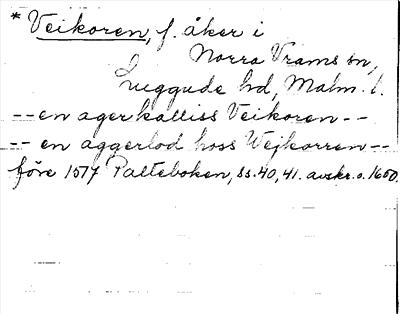 * Veikoren, f. åker i
Norra Vrams sn,
Luggude hd, Malm. l.
--en ager kalliss Veikoren--
--en aggerlod hoss Wejkorren--
före 1577 Palteboken, ss. 40, 41. avskr. o. 1600.